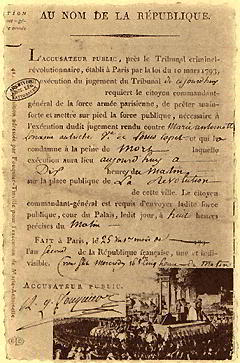 AU NOM DE LA RÉPUBLIQUE.
L'ACCUSATEUR PUBLIC, près le Tribunal criminel-
révolutionnaire, établi à Paris par la loi du 10 mars 1793,
en exécution du jugement du Tribunal de ce jourd'huy
requiert le citoyen commandant-
général de la force armée parisienne, de prêter main-
forte et mettre sur pied la force publique, nécessaire à
l'exécution dudit jugement rendu contre Marie antoinette
Lorraine autriche Ve de Louis Capet et qui la
condamne à la peine de Mort laquelle
exécution aura lieu aujourd'huy à
Dix heures du Matin
sur la place publique de La Révolution
de cette ville. Le citoyen
commandant-général est requis d'envoyer ladite force
publique, cour du Palais, ledit jour, à huit heures
précises du Matin
FAIT à Paris, le 25
l'an second de la République française, une et indi-
visible. Mercredy 16 heures du Matin
ACCUSATEUR PUBLIC.